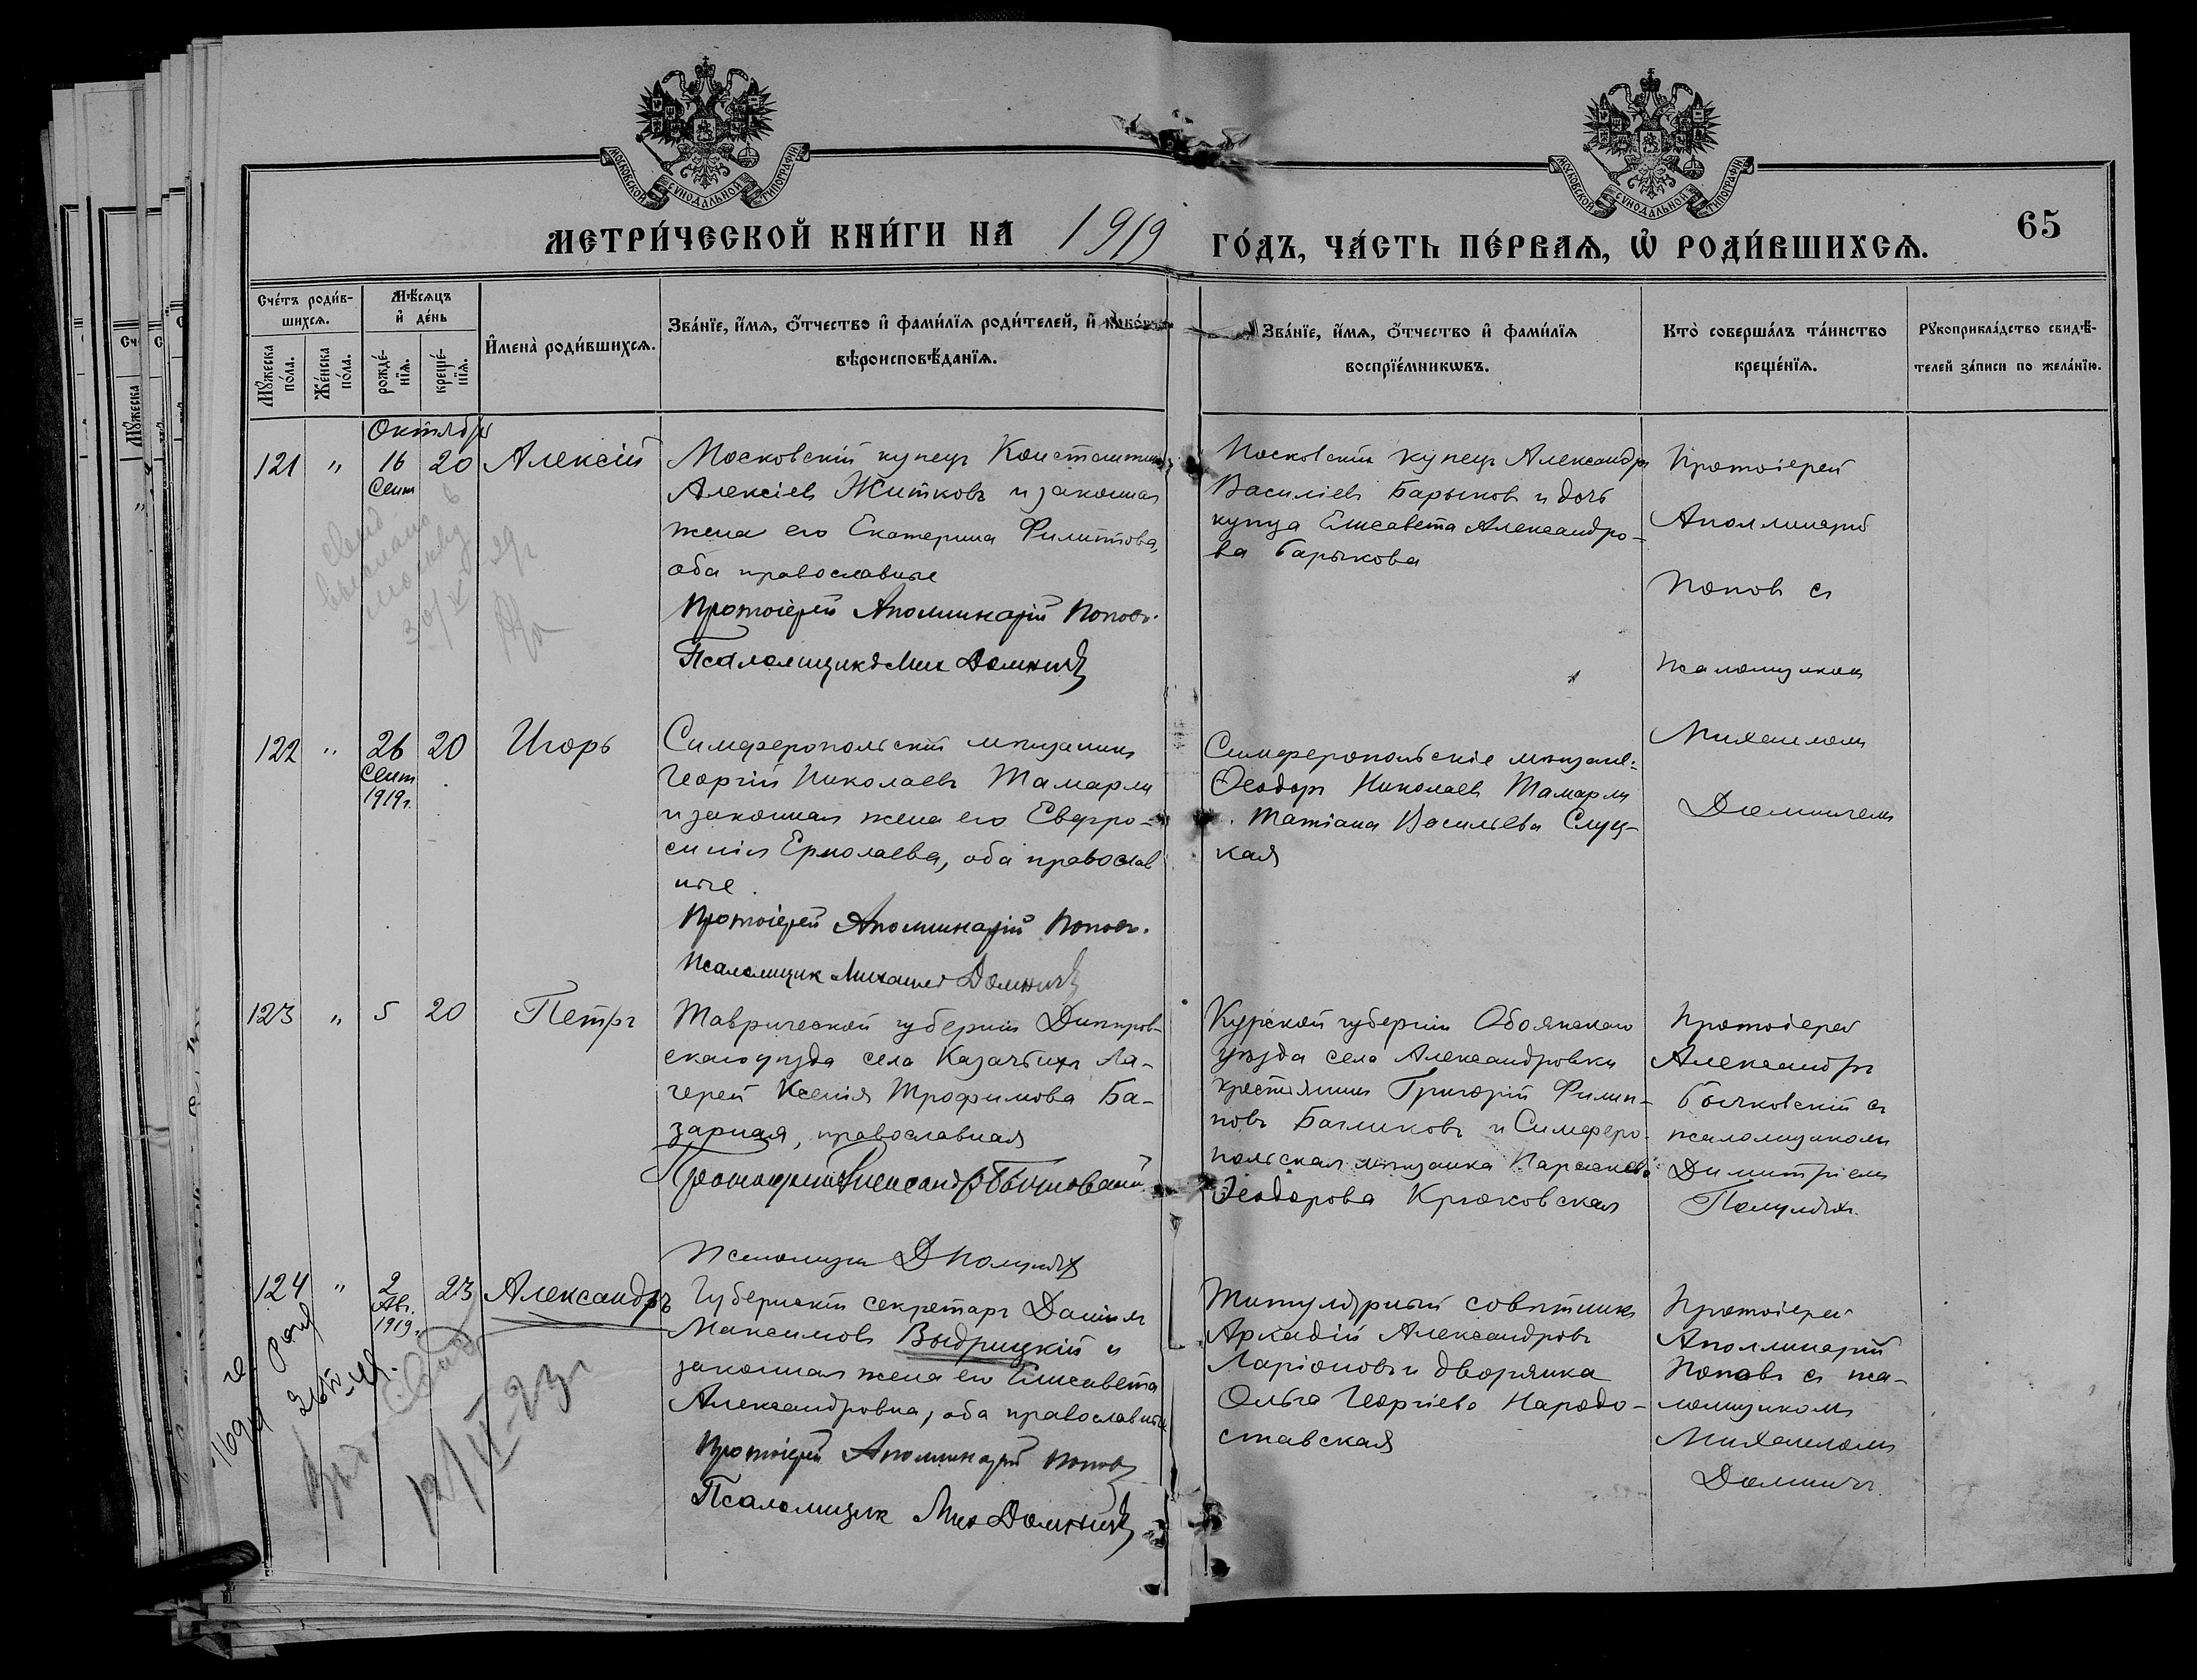 МОСКОВСКОЙ СѴНОДАЛЬНОЙ ТИПОГРАФІИ
МОСКОВСКОЙ СѴНОДАЛЬНОЙ ТИПОГРАФІИ
65
МЕТРИ́ЧЕСКОЙ КНИ́ГИ НА 1919 ГО́ДЪ, ЧА́СТЬ ПЕ́РВАЯ, Ѡ҆ РОДИ́ВШИХСЯ.
Сче́тъ роди́в-
шихся.
Мꙋ́жеска по́ла.
Же́нска по́ла.
Мѣ́сяцъ
и҆ де́нь
рожде́-
нїя.
креще́-
нїя.
И҆мена̀ роди́вшихся.
Зва́нїе, и҆́мя, ѻ҆́тчество и҆ фами́лїя роди́телей, и҆
вѣроисповѣ́данїя.
Зва́нїе, и҆́мя, ѻ҆́тчество и҆ фами́лїя
воспрїе́мникѡвъ.
Кто̀ соверша́лъ та́инство
креще́нїя.
Рꙋкоприкла́дство свидѣ́-
телей за́писи по жела́нїю.
Октября
121 " 16 20 Алексій
Сент
Московскій купец Константинъ
Алексіев Житковъ и законная
жена его Екатерина Филиппова,
оба православные
Протоіерей Аполлинарій Поповъ.
Псаломщикъ Мих Домнич
Московскій купец Александр
Василіев Барыков и дочь
купца Елисавета Александро-
ва Барыкова
Протоіерей
Аполлинарій
Попов съ
псаломщиком
Михаилом
Домничем
Свид
выслано в
Москву
30/V 29г
122 " 26 20 Игорь
Сент
1919г.
Симферопольскій мѣщанин
Георгій Николаев Тамарли
и законная жена его Евфро-
синія Ермолаева, оба православ
ные.
Протоіерей Аполлинарій Поповъ.
Псаломщик Михаил Домнич
Симферопольскіе мѣщане:
Ѳеодор Николаев Тамарли
Татіана Васильева Слуц-
кая
123 " 5 20 Петръ
Таврической губерніи Днѣпров-
скаго уѣзда села Казачьихъ Ла-
герей Ксенія Трофимова Ба-
зарная, православная
Протоіерей Александр Бычковскій
Псаломщик Д Полулях
Курской губерніи Обоянскаго
уѣзда села Александровки
крестьянин Григорій Филип-
повъ Багликовъ и Симферо-
польская мѣщанка Параскева
Ѳеодорова Крюковская
Протоіерей
Александръ
Бычковскій съ
псаломщиком
Димитріем
Полулях.
124 " 2 23 Александръ
Авг.
1919г.
Губернскій секретарь Даніил
Максимов Выдрицкій и
законная жена его Елисавета
Александровна, оба православные
Протоіерей Аполлинарій Поповъ
Псаломщик Мих Домнич
Титулярный совѣтник
Аркадій Александровъ
Ларіоновъ и дворянка
Ольга Георгіева Народо-
ставская
Протоіерей
Аполлинарій
Поповъ съ пса-
ломщиком
Михаилом
Домнич.